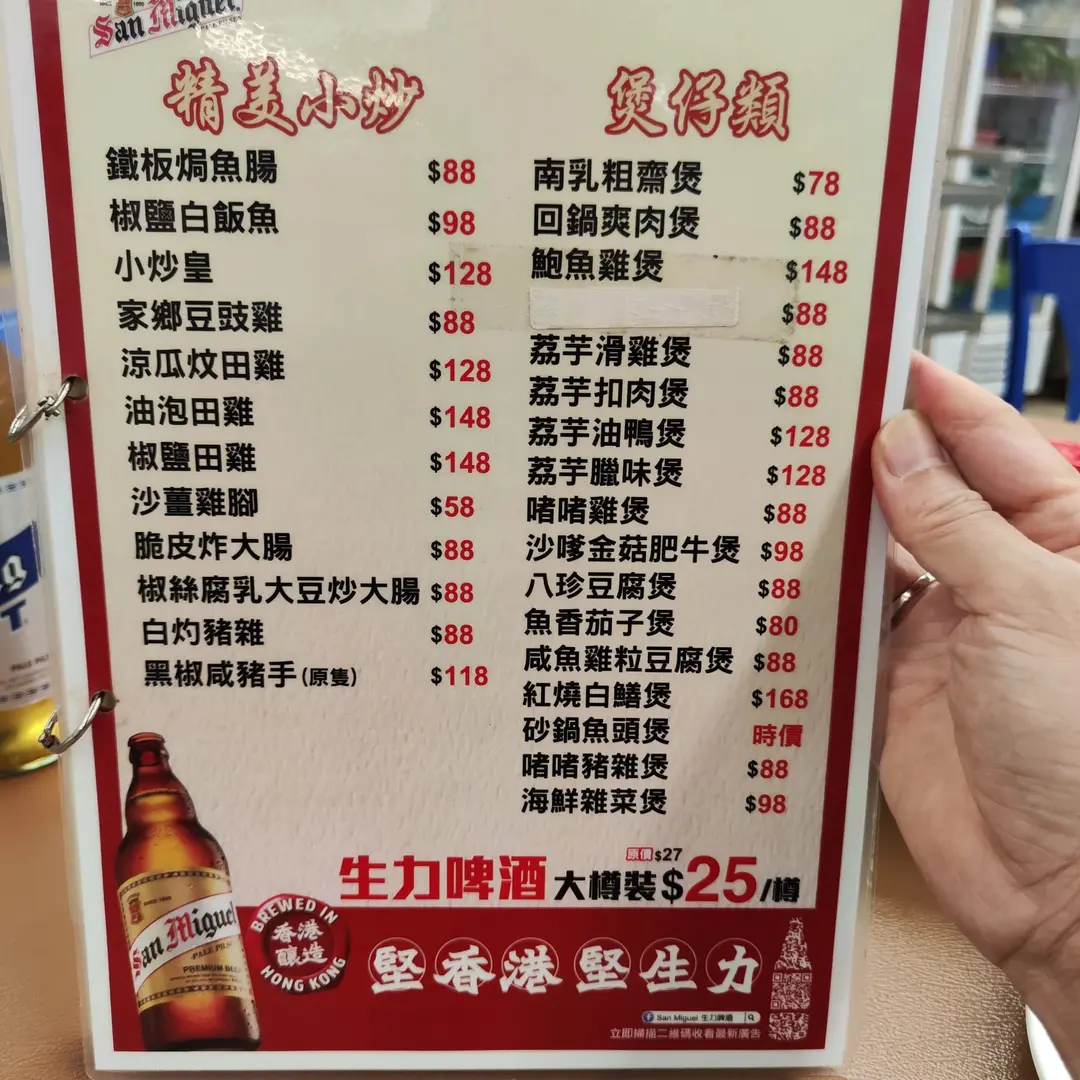 San Miguel
PALE PILSEN
精美小炒
鐵板焗魚腸 $88
椒鹽白飯魚 $98
小炒皇 $128
家鄉豆豉雞 $88
涼瓜炆田雞 $128
油泡田雞 $148
椒鹽田雞 $148
沙薑雞腳 $58
脆皮炸大腸 $88
椒絲腐乳大豆炒大腸 $88
白灼豬雜 $88
黑椒咸豬手(原隻) $118
煲仔類
南乳粗齋煲 $78
回鍋爽肉煲 $88
鮑魚雞煲 $148
$88
荔芋滑雞煲 $88
荔芋扣肉煲 $88
荔芋油鴨煲 $128
荔芋臘味煲 $128
啫啫雞煲 $88
沙嗲金菇肥牛煲 $98
八珍豆腐煲 $88
魚香茄子煲 $80
咸魚雞粒豆腐煲 $88
紅燒白鱔煲 $168
砂鍋魚頭煲 時價
啫啫豬雜煲 $88
海鮮雜菜煲 $98
原價 $27
生力啤酒 大樽裝 $25/樽
San Miguel
PALE PILSEN
PREMIUM BEER
BREWED IN
香港
釀造
HONG KONG
堅香港堅生力
San Miguel 生力啤酒
立即掃描二維碼收看最新廣告